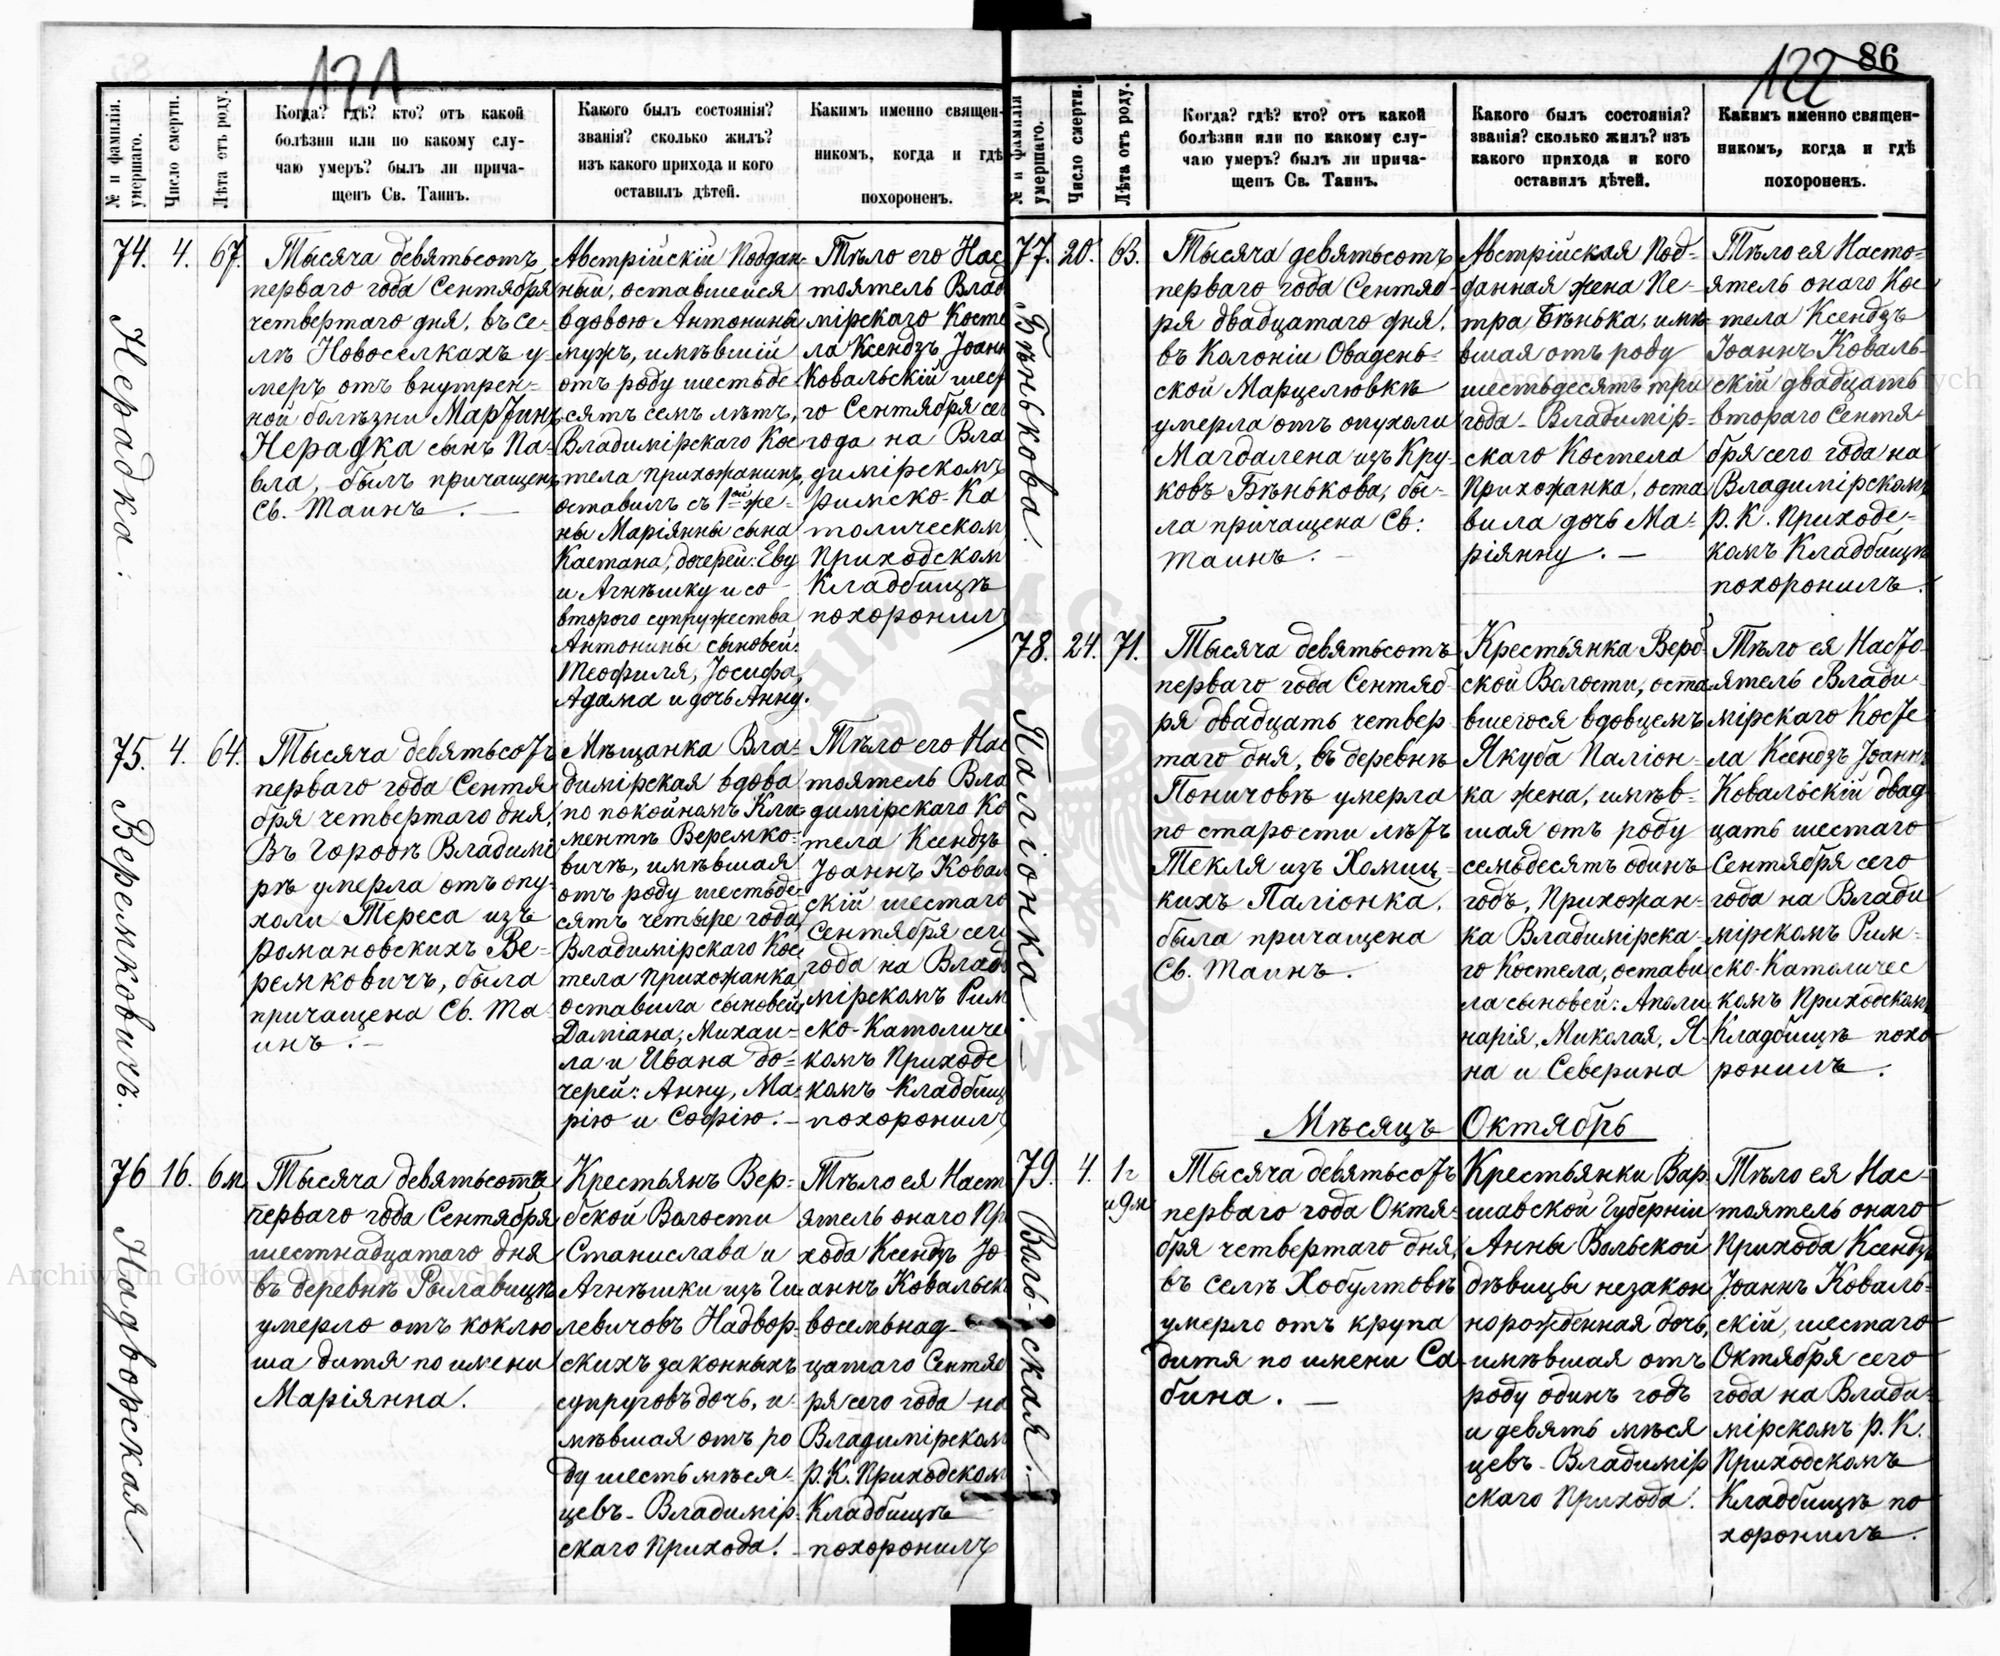 121
№ и фамилія умершаго.
Число смерти.
Лѣта отъ роду.
Когда? гдѣ? кто? отъ какой
болѣзни или по какому слу-
чаю умеръ? былъ ли прича-
щенъ Св. Таинъ.
Какого былъ состоянія?
званія? сколько жилъ?
изъ какого прихода и кого
оставилъ дѣтей.
Какимъ именно священ-
никомъ, когда и гдѣ
похороненъ.
74. 4. 67.
Нерадка.
Тысяча девятьсотъ
перваго года Сентября
четвертаго дня, въ се-
лѣ Новоселкахъ у-
меръ отъ внутрен-
ной болѣзни Мартинъ
Нерадка сынъ Па-
вла, былъ причащенъ
Св. Таинъ.
Австрійскій Поддан-
ный, оставшейся
вдовою Антонины
мужъ, имѣвшій
отъ роду шестьде-
сятъ семь лѣтъ,
Владимірскаго Кос-
тела прихожанинъ,
оставилъ съ 1ой же-
ны Маріянны сына
Каетана, дочерей: Еву
и Агнѣшку и со
второго супружества
Антонины сыновей:
Теофиля, Іосифа,
Адама и дочь Анну.
Тѣло его Нас
тоятель Влад
мірскаго Косте
ла Ксендзъ Іоанн
Ковальскій шест
го Сентября сег
года на Вла
димірскомъ
римско-Ка
толическом
Приходском
Кладбищѣ
похоронилъ
75. 4. 64.
Веремковичъ.
Тысяча девятьсотъ
перваго года Сентя
бря четвертаго дня,
Въ Городѣ Владимі
рѣ умерла отъ опу-
холи Тереса изъ
романовскихъ Ве-
ремковичъ, была
причащена Св. Та
инъ.
Мѣщанка Вла-
димірская вдова
по покойномъ Кли-
ментѣ Веремко-
вичѣ, имѣвшая
отъ роду шестьде
сятъ четыре года,
Владимірскаго Кос
тела прихожанка,
оставила сыновей
Даміана, Михаи-
ла и Ивана до-
черей: Анну, Ма-
рію и Софію.
Тѣло его Нас
тоятель Вла
димірскаго Ко
тела Ксендзъ
Іоаннъ Ковал
скій шестаго
Сентября сег
года на Влад
мірскомъ Рим
ско-Католиче
комъ Приходс
комъ Кладбищ
похоронилъ
76 16. 6м
Надворская.
Тысяча девятьсотъ
перваго года Сентября
шестнадцатаго дня
въ деревнѣ Рылавицѣ
умерло отъ коклю
ша дитя по имени
Маріянна.
Крестьянъ Вер-
бской Волости
Станислава и
Агнѣшки изъ Ги-
левичовъ Надвор-
скихъ законныхъ
супруговъ дочь, и-
мѣвшая отъ ро
ду шесть мѣся-
цевъ - Владимір-
скаго Прихода.
Тѣло ея Наст
ятель онаго Пр
хода Ксендзъ Іо
аннъ Ковальск
восемьнад-
цатаго Сентяб
ря сего года на
Владимірском
р. К. Приходском
Кладбищѣ
похоронилъ
122 86
№ и фамилія умершаго.
Число смерти.
Лѣта отъ роду.
Когда? гдѣ? кто? отъ какой
болѣзни или по какому слу-
чаю умеръ? былъ ли прича-
щенъ Св. Таинъ.
Какого былъ состоянія?
званія? сколько жилъ? изъ
какого прихода и кого
оставилъ дѣтей.
Какимъ именно священ-
никомъ, когда и гдѣ
похороненъ.
77. 20. 63.
Бѣнькова.
Тысяча девятьсотъ
перваго года Сентяб-
ря двадцатаго дня,
въ Колоніи Овадень-
ской Марцелювкѣ
умерла отъ опухоли
Магдалена изъ Кру-
ковъ Бѣнькова, бы-
ла причащена Св:
Таинъ.
Австрійская Под-
данная жена Пе-
тра Бѣнька, имѣ-
вшая отъ роду
шестьдесятъ три
года - Владимір-
скаго Костела
Прихожанка, оста
вила дочь Ма-
ріянну.
Тѣло ея Насто-
ятель онаго Кос-
тела Ксендзъ
Іоаннъ Коваль-
скій двадцать
втораго Сентя-
бря сего года на
Владимірскомъ
р. К. Приходс-
комъ Кладбищѣ
похоронилъ.
78. 24. 71.
Паліонка.
Тысяча девятьсотъ
перваго года Сентяб-
ря двадцать четвер
таго дня, въ деревнѣ
Поничовѣ умерла
по старости лѣтъ
Текля изъ Хомиц-
кихъ Паліонка,
была причащена
Св. Таинъ.
Крестьянка Верб-
ской Волости, оста-
вшегося вдовцемъ
Якуба Паліон-
ка жена, имѣв-
шая отъ роду
семьдесятъ одинъ
годъ, Прихожан-
ка Владимірска-
го Костела, остави
ла сыновей: Аполи
нарія, Миколая, Я-
на и Северина
Тѣло ея Насто-
ятель Влади-
мірскаго Косте
ла Ксендзъ Іоаннъ
Ковальскій двад
цать шестаго
Сентября сего
года на Влади
мірскомъ Рим-
ско-Католичес
комъ Приходском
Кладбищѣ похо
ронилъ.
Мѣсяцъ Октябрь
79. 4. 1г
и 9м
Воль-ская.
Тысяча девятьсотъ
перваго года Октя-
бря четвертаго дня,
въ селѣ Хобултовѣ
умерло отъ крупа
дитя по имени Са
бина.
Крестьянки Вар-
шавской Губерніи
Анны Вольской
дѣвицы незакон
норожденная дочь,
имѣвшая отъ
роду одинъ годъ
и девять мѣся
цевъ - Владимір
скаго Прихода.
Тѣло ея Нас-
тоятель онаго
Прихода Ксендзъ
Іоаннъ Коваль-
скій, шестаго
Октября сего
года на Влади-
мірскомъ р. К.
Приходскомъ
Кладбищѣ по
хоронилъ.
Archiwum Główne Akt Dawnych
Archiwum Główne Akt Dawnych